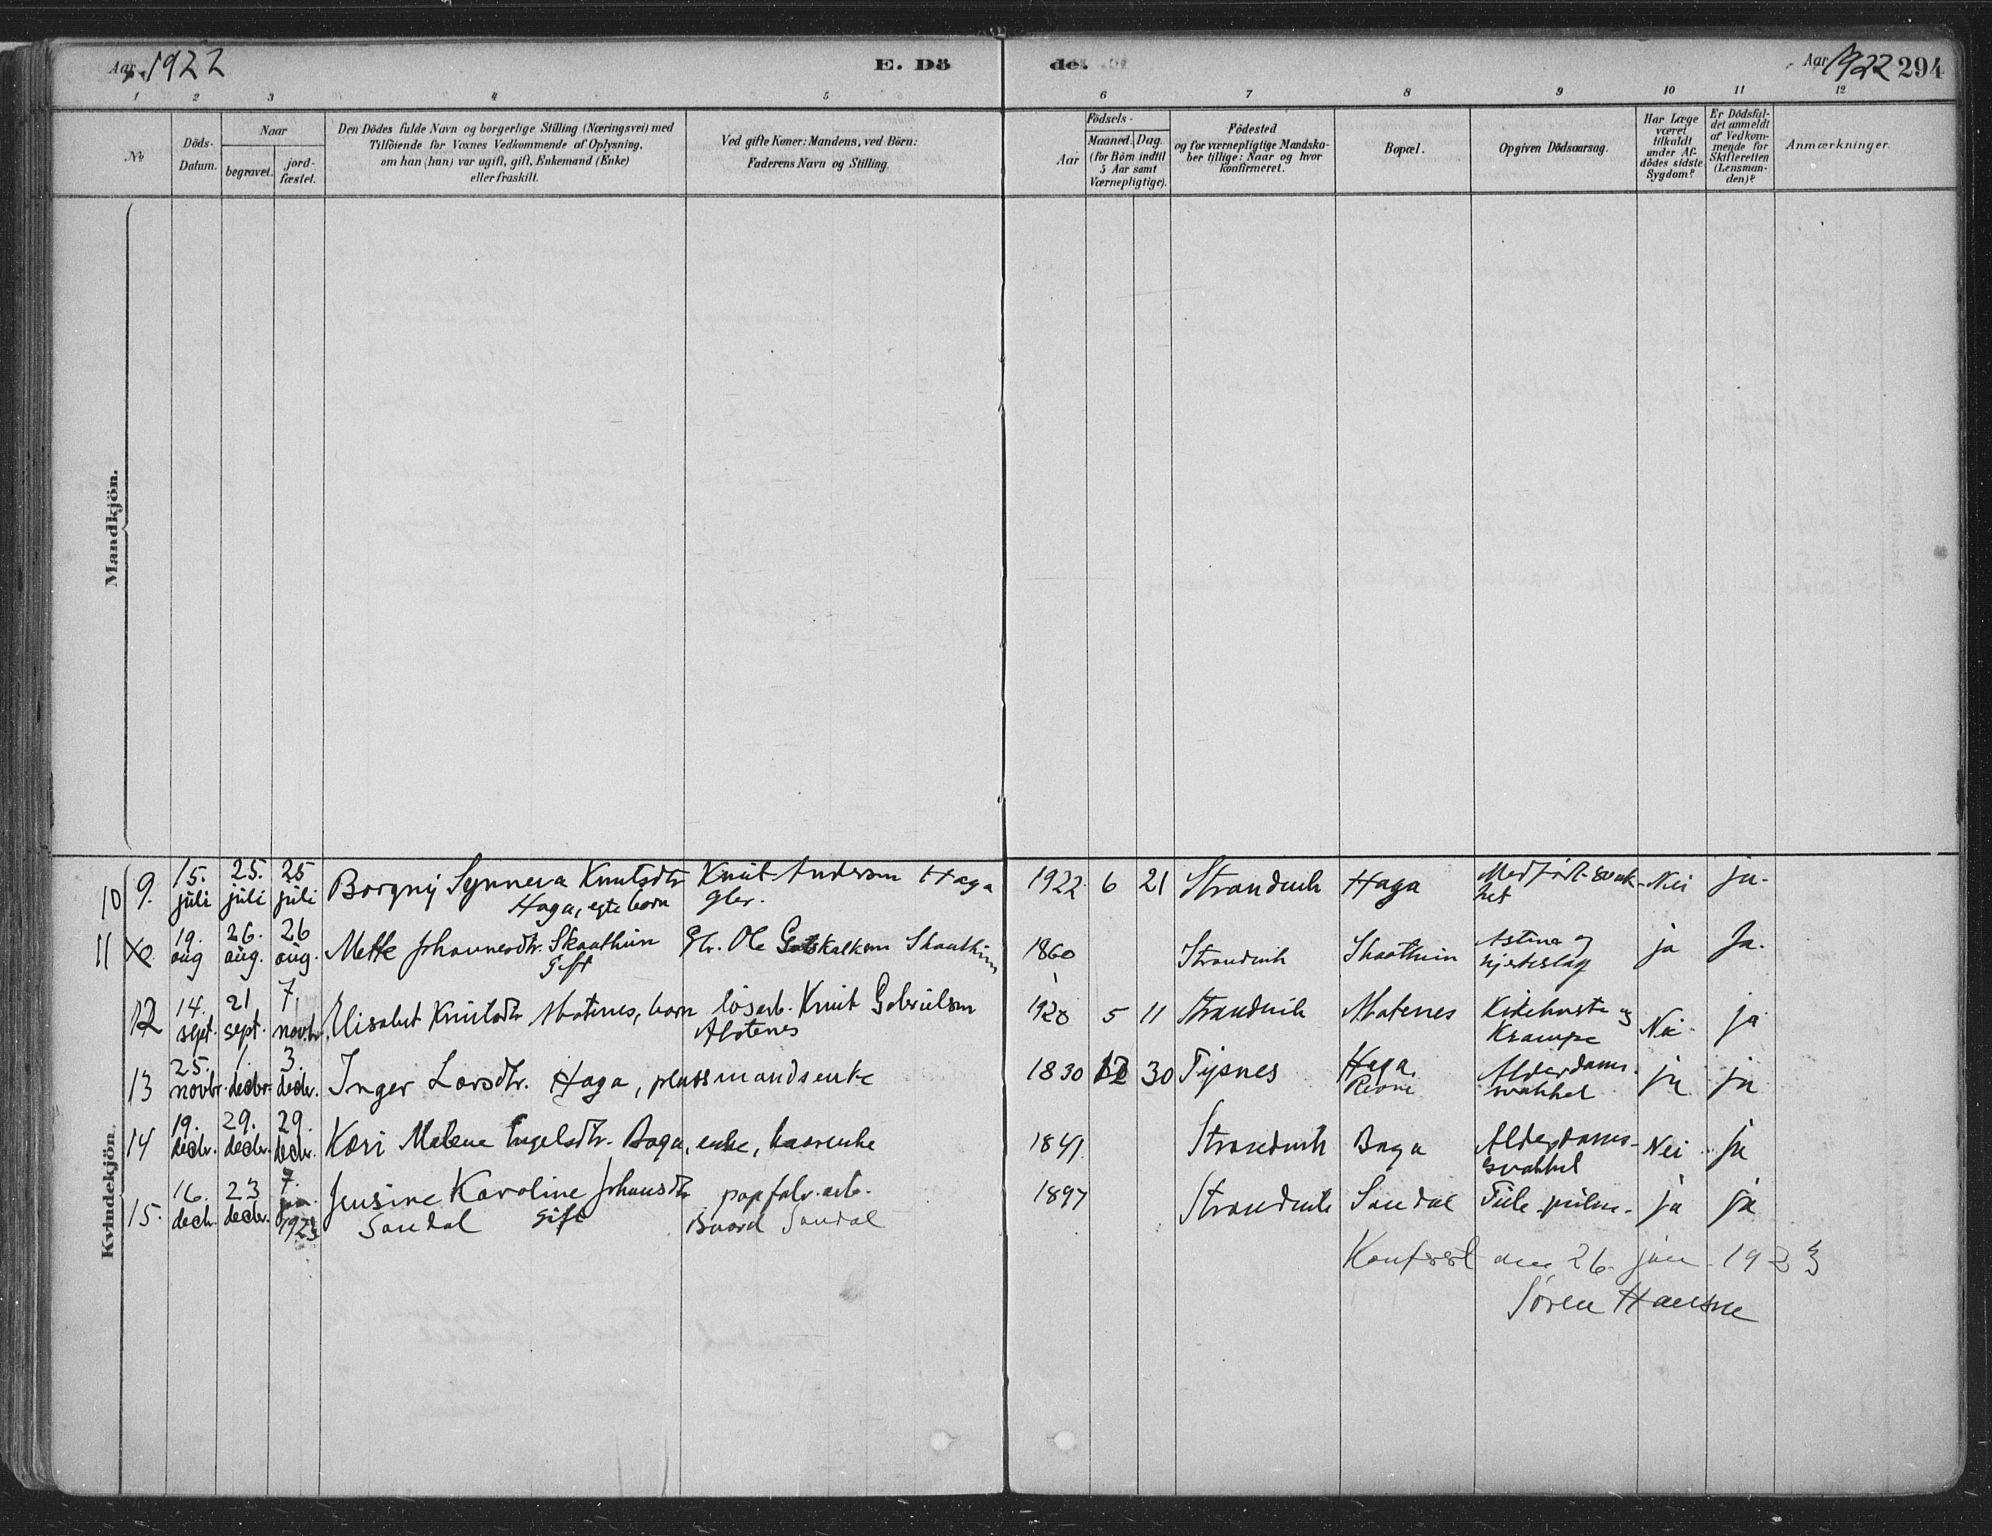 Aar 1922
E. Dö
de.
Aar 1922 294
1 2 3 4 5 6 7 8 9 10 11 12
№
Döds-
Datum.
Naar
begravet.
jord-
fæstet.
Den Dödes fulde Navn og borgerlige Stilling (Næringsvei) med
Tilföiende for Voxnes Vedkommende af Oplysning,
om han (hun) var ugift, gift, Enkemand (Enke)
eller fraskilt.
Ved gifte Koner: Mandens, ved Börn:
Faderens Navn og Stilling.
Födsels-
Aar
Maaned. Dag.
(for Börn indtil
5 Aar samt
Værnepligtige).
Födested
og for værnepligtige Mandska-
ber tillige: Naar og hvor
konfirmeret.
Bopæl.
Opgiven Dödsaarsag.
Har Læge
været
tilkaldt
under Af-
dödes sidste
Sygdom?
Er Dödsfal-
det anmeldt
af Vedkom-
mende for
Skifteretten
(Lensman-
den)?
Anmærkninger.
Mandkjön.
Kvindekjön.
10 9. 15. juli 25. juli 25 juli Borgny Synneva Knutsdtr Knut Anderson Haga 1922 6 21 Strandvik Haga Medfødt svak- Nei ja.
Haga, egte barn gbr. het
11 19. aug 26. aug. 26 aug. Mette Johannesdtr. Skaathun Gbr. Ole Gotskalksen Skaathun 1860 Strandvik Skaathun Astma og ja Ja.
Gift hjerteslag
12 14. sept. 21 sept. 7. novbr. Elisabet Knutsdtr Abotenes, barn løsarb. Knut Gabrielson 1920 5 11 Strandvik Abotenes Kikehoste og Nei ja
Abotenes Krampe
13 25. novbr. 1. decbr. 3. decbr. Inger Larsdtr. Haga, plassmandsenke 1830 12 30 Tysnes Haga Alderdoms- ja ja
svakhet
14 19. decbr. 29. decbr. 29. decbr. Kari Malene Engelsdtr. Baga, enke, kaarenke 1841 Strandvik Baga Alderdoms- Nei ja
svakhet
15. 16. decbr. 23 decbr. 7. jan. 1923 Jensine Karoline Johansdtr papfabr. arb. 1897 Strandvik Sandal ja ja
Sandal Gift Baard Sandal
Konferert den 26. jan. 1923
Søren Hansen